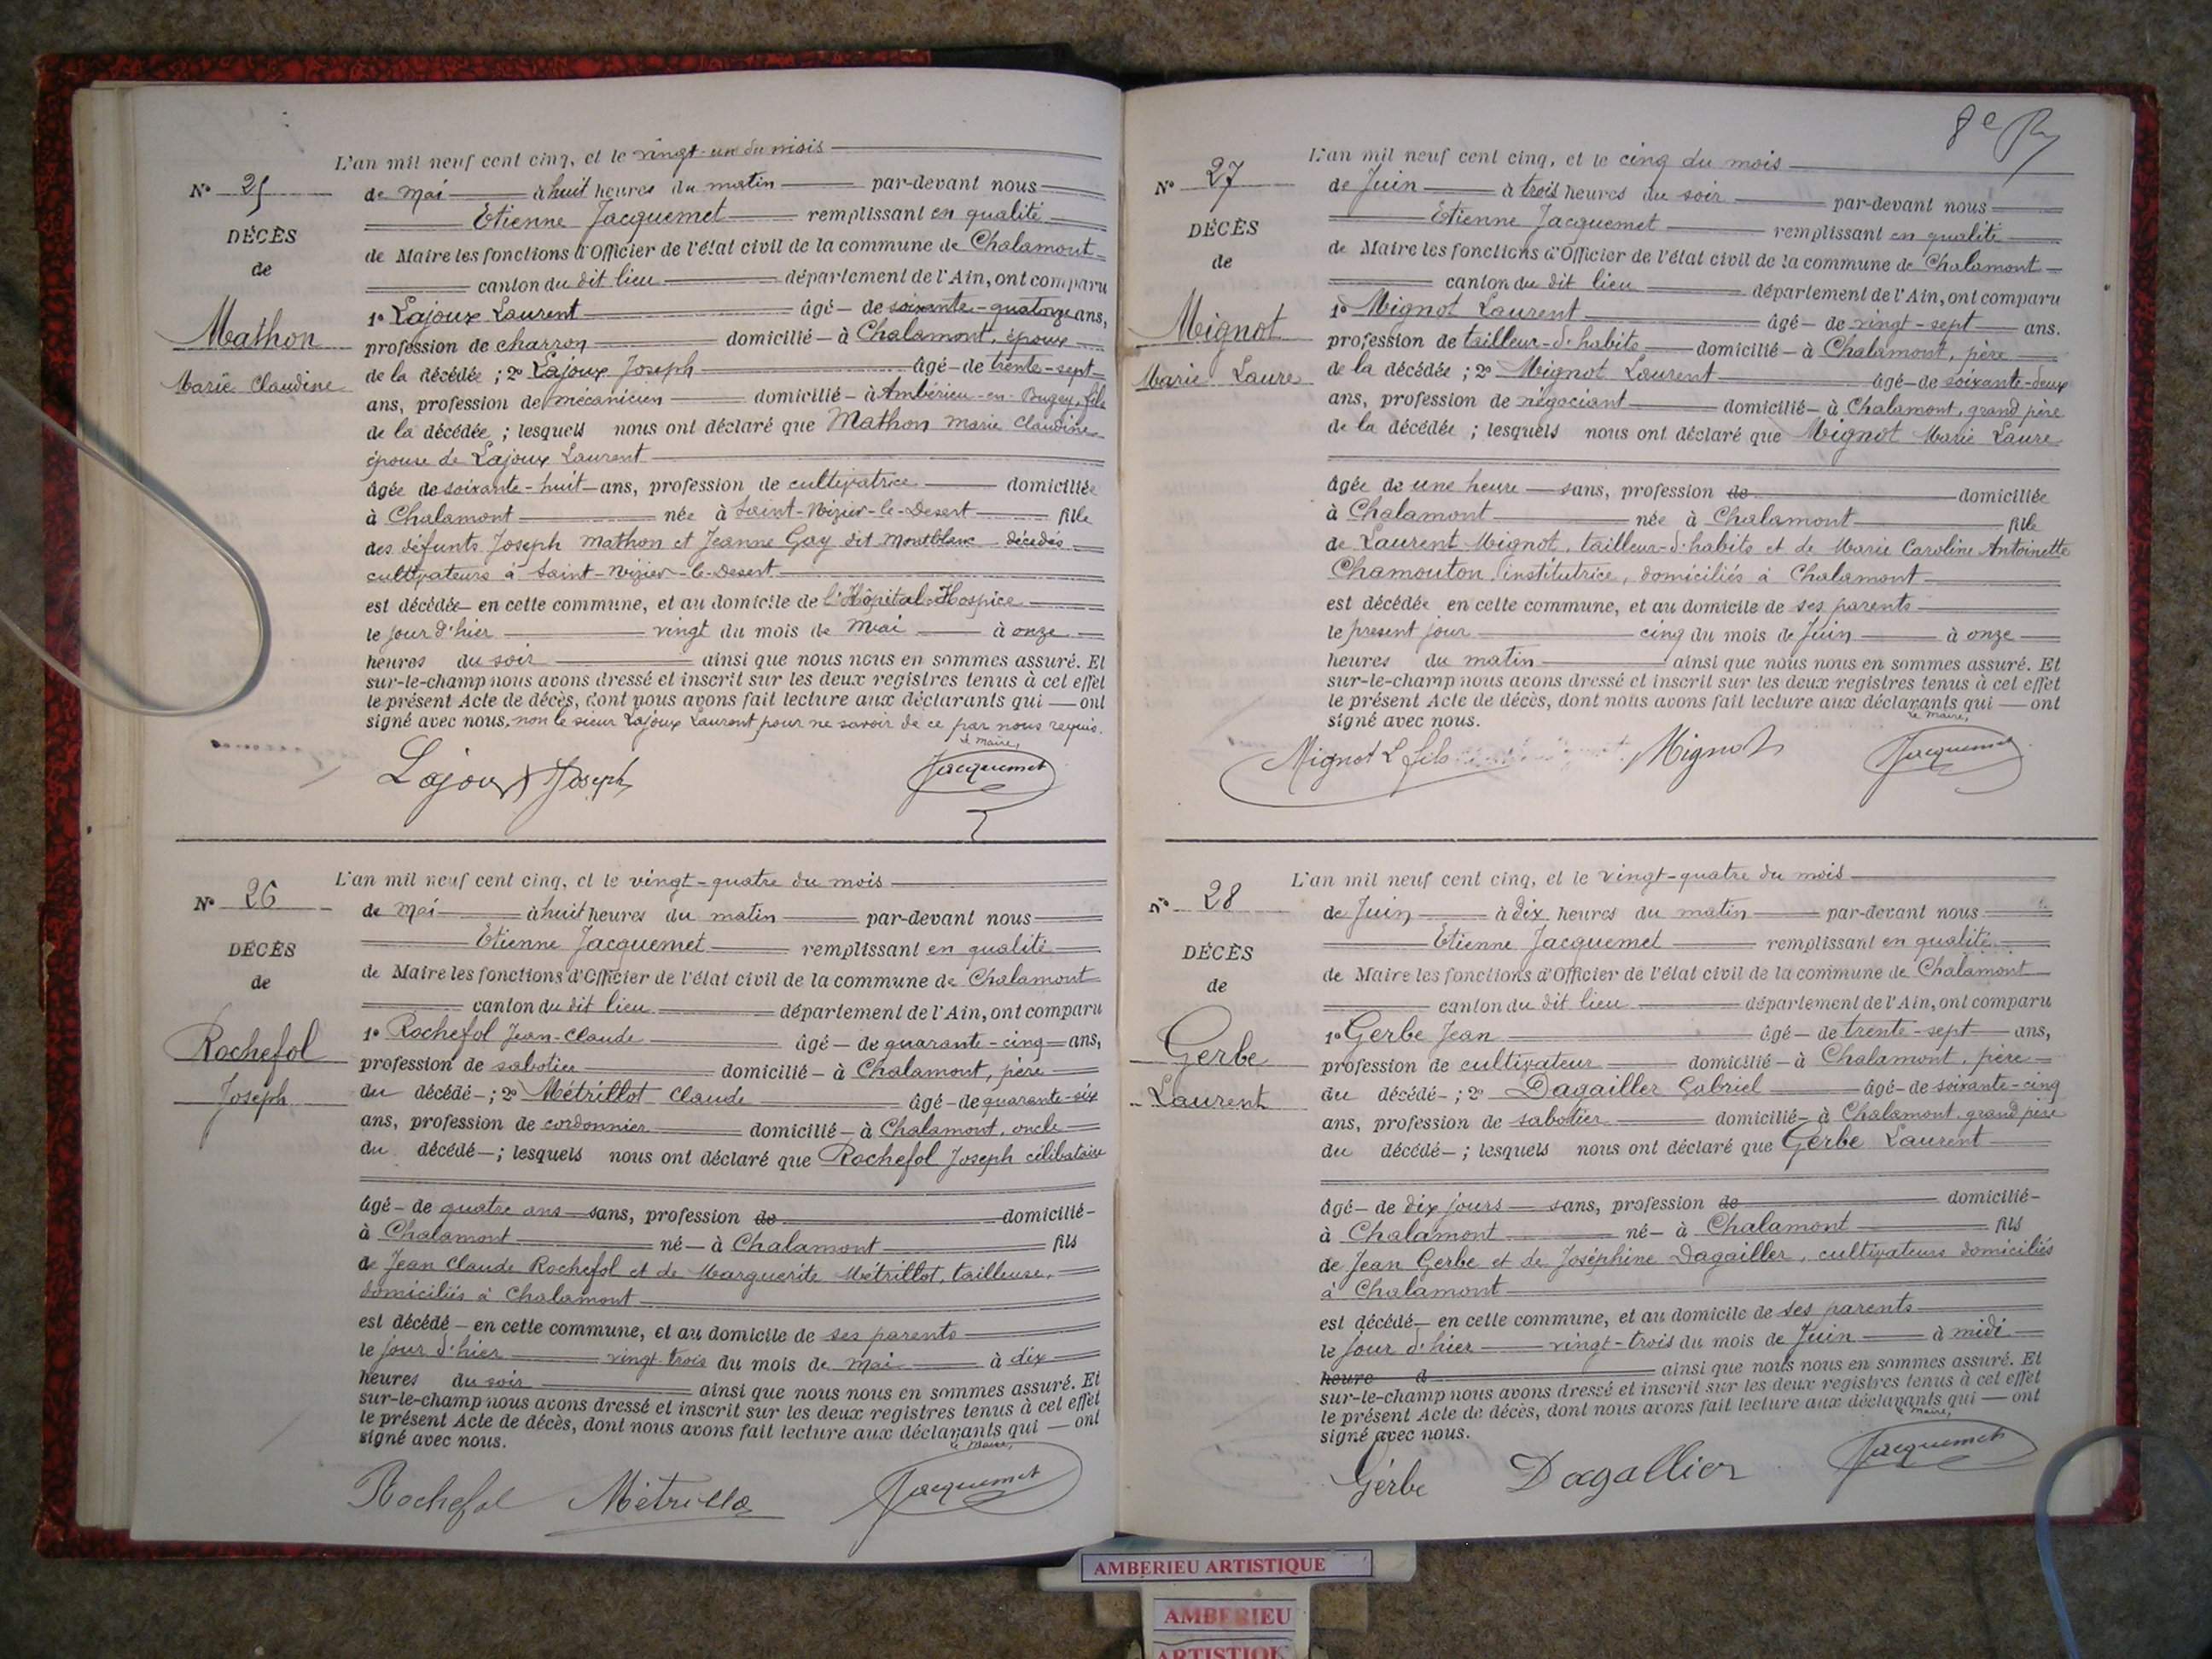 L'an mil neuf cent cinq, et le vingt-un du mois
N° 25
de Mai à huit heures du matin par-devant nous
Etienne Jacquemet remplissant en qualité
DÉCÈS
de Maire les fonctions d'Officier de l'état civil de la commune de Chalamont
de
canton du dit lieu département de l'Ain, ont comparu
1° Lajoux Laurent âgé de soixante-quatorze ans,
Mathon
profession de charron domicilié à Chalamont, époux
Marie Claudine
de la décédée ; 2° Lajoux Joseph âgé de trente-sept
ans, profession de mécanicien domicilié à Ambérieu-en-Bugey, fils
de la décédée ; lesquels nous ont déclaré que Mathon Marie Claudine
épouse de Lajoux Laurent
âgée de soixante-huit ans, profession de cultivatrice domiciliée
à Chalamont née à Saint-Nizier-le-Desert fille
des défunts Joseph Mathon et Jeanne Gay dit Montblanc décédés
cultivateurs à Saint-Nizier-le-Desert
est décédée en cette commune, et au domicile de l'Hôpital-Hospice
le jour d'hier vingt du mois de Mai à onze
heures du soir ainsi que nous nous en sommes assuré. Et
sur-le-champ nous avons dressé et inscrit sur les deux registres tenus à cet effet
le présent Acte de décès, dont nous avons fait lecture aux déclarants qui ont
signé avec nous, non le sieur Lajoux Laurent pour ne savoir de ce par nous requis.
le Maire,
Lajoux Joseph Jacquemet
L'an mil neuf cent cinq, et le vingt-quatre du mois
N° 26
de Mai à huit heures du matin par-devant nous
Etienne Jacquemet remplissant en qualité
DÉCÈS
de Maire les fonctions d'Officier de l'état civil de la commune de Chalamont
de
canton du dit lieu département de l'Ain, ont comparu
1° Rochefol Jean-Claude âgé de quarante-cinq ans,
Rochefol
profession de sabotier domicilié à Chalamont, père
Joseph
du décédé ; 2° Métrillot Claude âgé de quarante-six
ans, profession de cordonnier domicilié à Chalamont, oncle
du décédé ; lesquels nous ont déclaré que Rochefol Joseph célibataire
âgé de quatre ans sans, profession de domicilié
à Chalamont né à Chalamont fils
de Jean Claude Rochefol et de Marguerite Métrillot, tailleuse,
domiciliés à Chalamont
est décédé en cette commune, et au domicile de ses parents
le jour d'hier vingt-trois du mois de Mai à dix
heures du soir ainsi que nous nous en sommes assuré. Et
sur-le-champ nous avons dressé et inscrit sur les deux registres tenus à cet effet
le présent Acte de décès, dont nous avons fait lecture aux déclarants qui ont
signé avec nous.
le Maire,
Rochefol Métrillo Jacquemet
8e
L'an mil neuf cent cinq, et le cinq du mois
N° 27
de Juin à trois heures du soir par-devant nous
Etienne Jacquemet remplissant en qualité
DÉCÈS
de Maire les fonctions d'Officier de l'état civil de la commune de Chalamont
de
canton du dit lieu département de l'Ain, ont comparu
1° Mignot Laurent âgé de vingt-sept ans.
Mignot
profession de tailleur-d'habits domicilié à Chalamont, père
Marie Laure
de la décédée ; 2° Mignot Laurent âgé de soixante-deux
ans, profession de négociant domicilié à Chalamont, grand père
de la décédée ; lesquels nous ont déclaré que Mignot Marie Laure
âgée de une heure sans, profession de domiciliée
à Chalamont née à Chalamont fille
de Laurent Mignot, tailleur-d'habits et de Marie Caroline Antoinette
Chamouton, institutrice, domiciliés à Chalamont
est décédée en cette commune, et au domicile de ses parents
le présent jour cinq du mois de Juin à onze
heures du matin ainsi que nous nous en sommes assuré. Et
sur-le-champ nous avons dressé et inscrit sur les deux registres tenus à cet effet
le présent Acte de décès, dont nous avons fait lecture aux déclarants qui ont
signé avec nous.
le Maire,
Mignot L fils Mignot Jacquemet
L'an mil neuf cent cinq, et le vingt-quatre du mois
N° 28
de Juin à dix heures du matin par-devant nous
Etienne Jacquemet remplissant en qualité
DÉCÈS
de Maire les fonctions d'Officier de l'état civil de la commune de Chalamont
de
canton du dit lieu département de l'Ain, ont comparu
1° Gerbe Jean âgé de trente-sept ans,
Gerbe
profession de cultivateur domicilié à Chalamont, père
Laurent
du décédé ; 2° Dagailler Gabriel âgé de soixante-cinq
ans, profession de sabotier domicilié à Chalamont, grand père
du décédé ; lesquels nous ont déclaré que Gerbe Laurent
âgé de dix jours sans, profession de domicilié
à Chalamont né à Chalamont fils
de Jean Gerbe et de Joséphine Dagailler, cultivateurs domiciliés
à Chalamont
est décédé en cette commune, et au domicile de ses parents
le jour d'hier vingt-trois du mois de Juin à midi
heure d ainsi que nous nous en sommes assuré. Et
sur-le-champ nous avons dressé et inscrit sur les deux registres tenus à cet effet
le présent Acte de décès, dont nous avons fait lecture aux déclarants qui ont
signé avec nous.
le Maire,
Gerbe Dagallier Jacquemet
AMBERIEU ARTISTIQUE
AMBERIEU
ARTISTIQUE